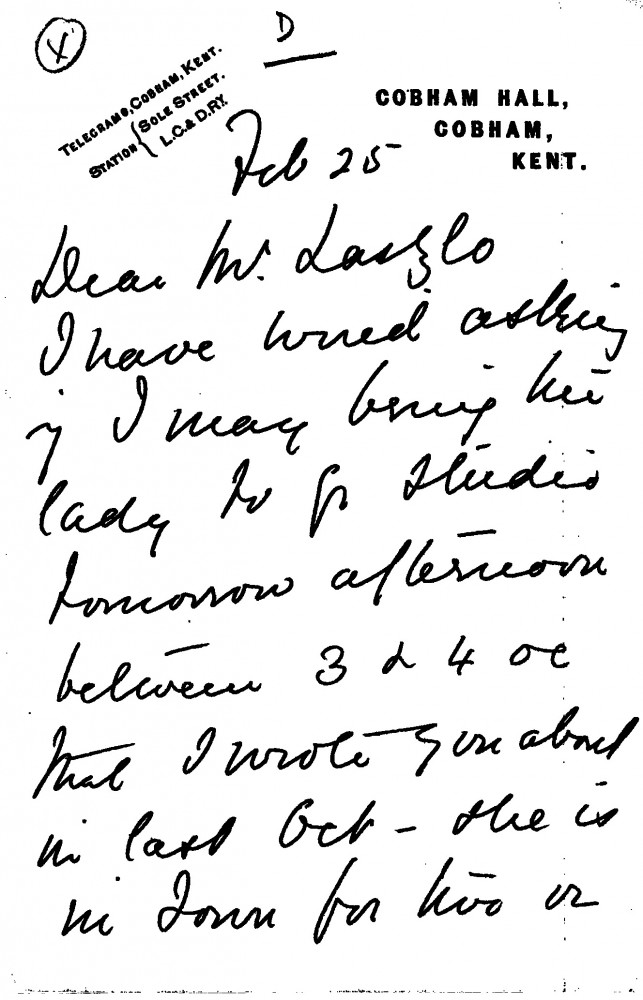 X
D
TELEGRAMS, COBHAM, KENT.
STATION { SOLE STREET.
L.C. & D. RY.
COBHAM HALL,
COBHAM,
KENT.
Feb 25
Dear Mr. Laszlo
I have wired asking
if I may bring the
lady to yr studio
tomorrow afternoon
between 3 & 4 oc
that I wrote you about
in last Oct – she is
in Town for two or